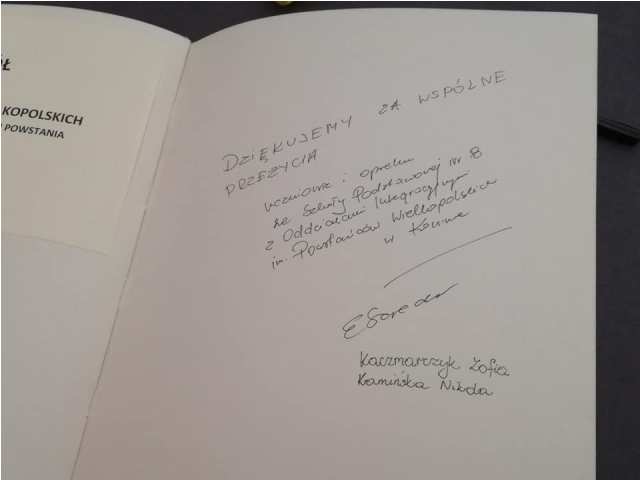 Ł
KOPOLSKICH
POWSTANIA
DZIĘKUJEMY ZA WSPÓLNE
PRZEŻYCIA
uczniowie i opiekun
ze Szkoły Podstawowej nr 8
z Oddziałami Integracyjnymi
im. Powstańców Wielkopolskich
w Koninie
Kaczmarczyk Zofia
Kamińska Nikola